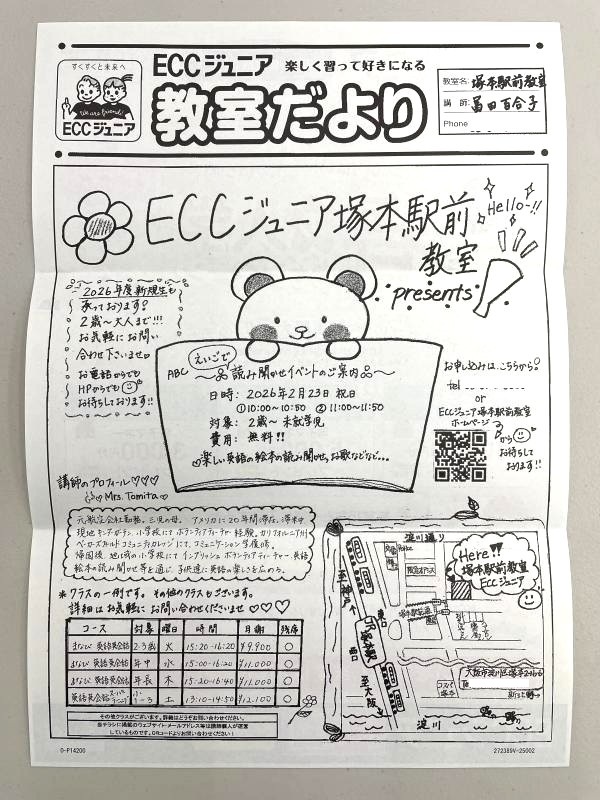 すくすくと未来へ
We are friends!
ECCジュニア
ECCジュニア 楽しく習って好きになる
教室だより
教室名: 塚本駅前教室
講師: 冨田百合子
Phone
Hello~!!
ECCジュニア塚本駅前
教室
presents
2026年度新規生も
承っております!
2歳~大人まで!!!
お気軽にお問い
合わせ下さいませ
お電話からでも
HPからでも
お待ちしております!!
ABC えいごで
読み聞かせイベントのご案内
日時: 2026年2月23日 祝日
①10:00~10:50 ②11:00~11:50
対象: 2歳~未就学児
費用: 無料!!
♡楽しい英語の絵本の読み聞かせ、お歌などなど...
お申し込みはこちらから!
tel
or
ECCジュニア塚本駅前教室
ホームページ
から
お待ち
しており
ます!!
講師のプロフィール♡♡♡
Mrs. Tomita♡
元航空会社勤務。三児の母。アメリカに20年間滞在。滞米中
現地キンダーガーテン、小学校にてボランティアティーチャー経験。カリフォルニア州
ベーカーズフィールドコミュニティカレッジにて、コミュニケーション学履修。
帰国後、地域の小学校にてイングリッシュボランティアティーチャー。英語
絵本の読み聞かせ等を通じ、子供達に英語の楽しさを広める。
*クラスの一例です。その他のクラスもございます。
詳細はお気軽にお問い合わせくださいませ♡♡♡
コース 対象 曜日 時間 月謝 残席
まなび 英語英会話 2-3歳 火 15:20-16:20 ¥9,900 ○
まなび 英語英会話 年中 水 15:00-16:20 ¥11,000 ○
まなび 英語英会話 年長 木 15:20-16:40 ¥11,000 ○
英語英会話 スーパーラーニング 小1~3 土 13:10-14:50 ¥12,100 ○
その他クラスがございます。詳細はどうぞお問い合わせください。
※チラシに掲載のウェブサイト・メールアドレス等は講師個人が運営
しているものです。QRコードよりお問い合わせください!
淀川通り
Police
阪急オアシス
Here!!
塚本駅前教室
ECCジュニア
至神戸
JR塚本駅
西口
東口
至大阪
塚本駅前
コスパ
塚本
大阪市淀川区塚本2
淀川
0-P14200
272389V-25002